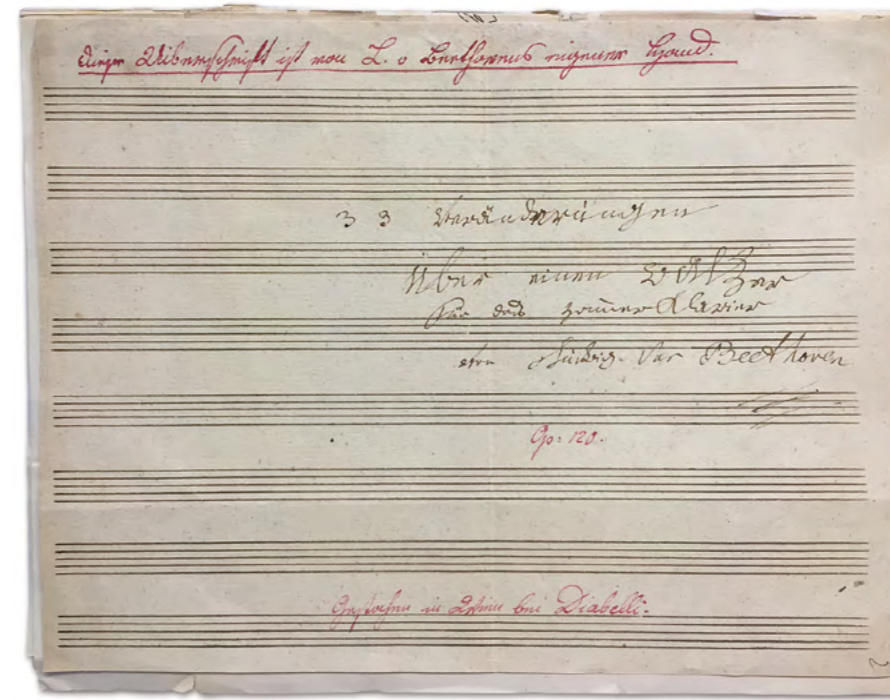 Diese Überschrift ist von L. v Beethovens eigener Hand.
33 Veränderungen
Über einen Walzer
Für das Hammer Klavier
von Ludwig Van Beethoven
Op: 120.
Gestochen in Wien bei Diabelli.